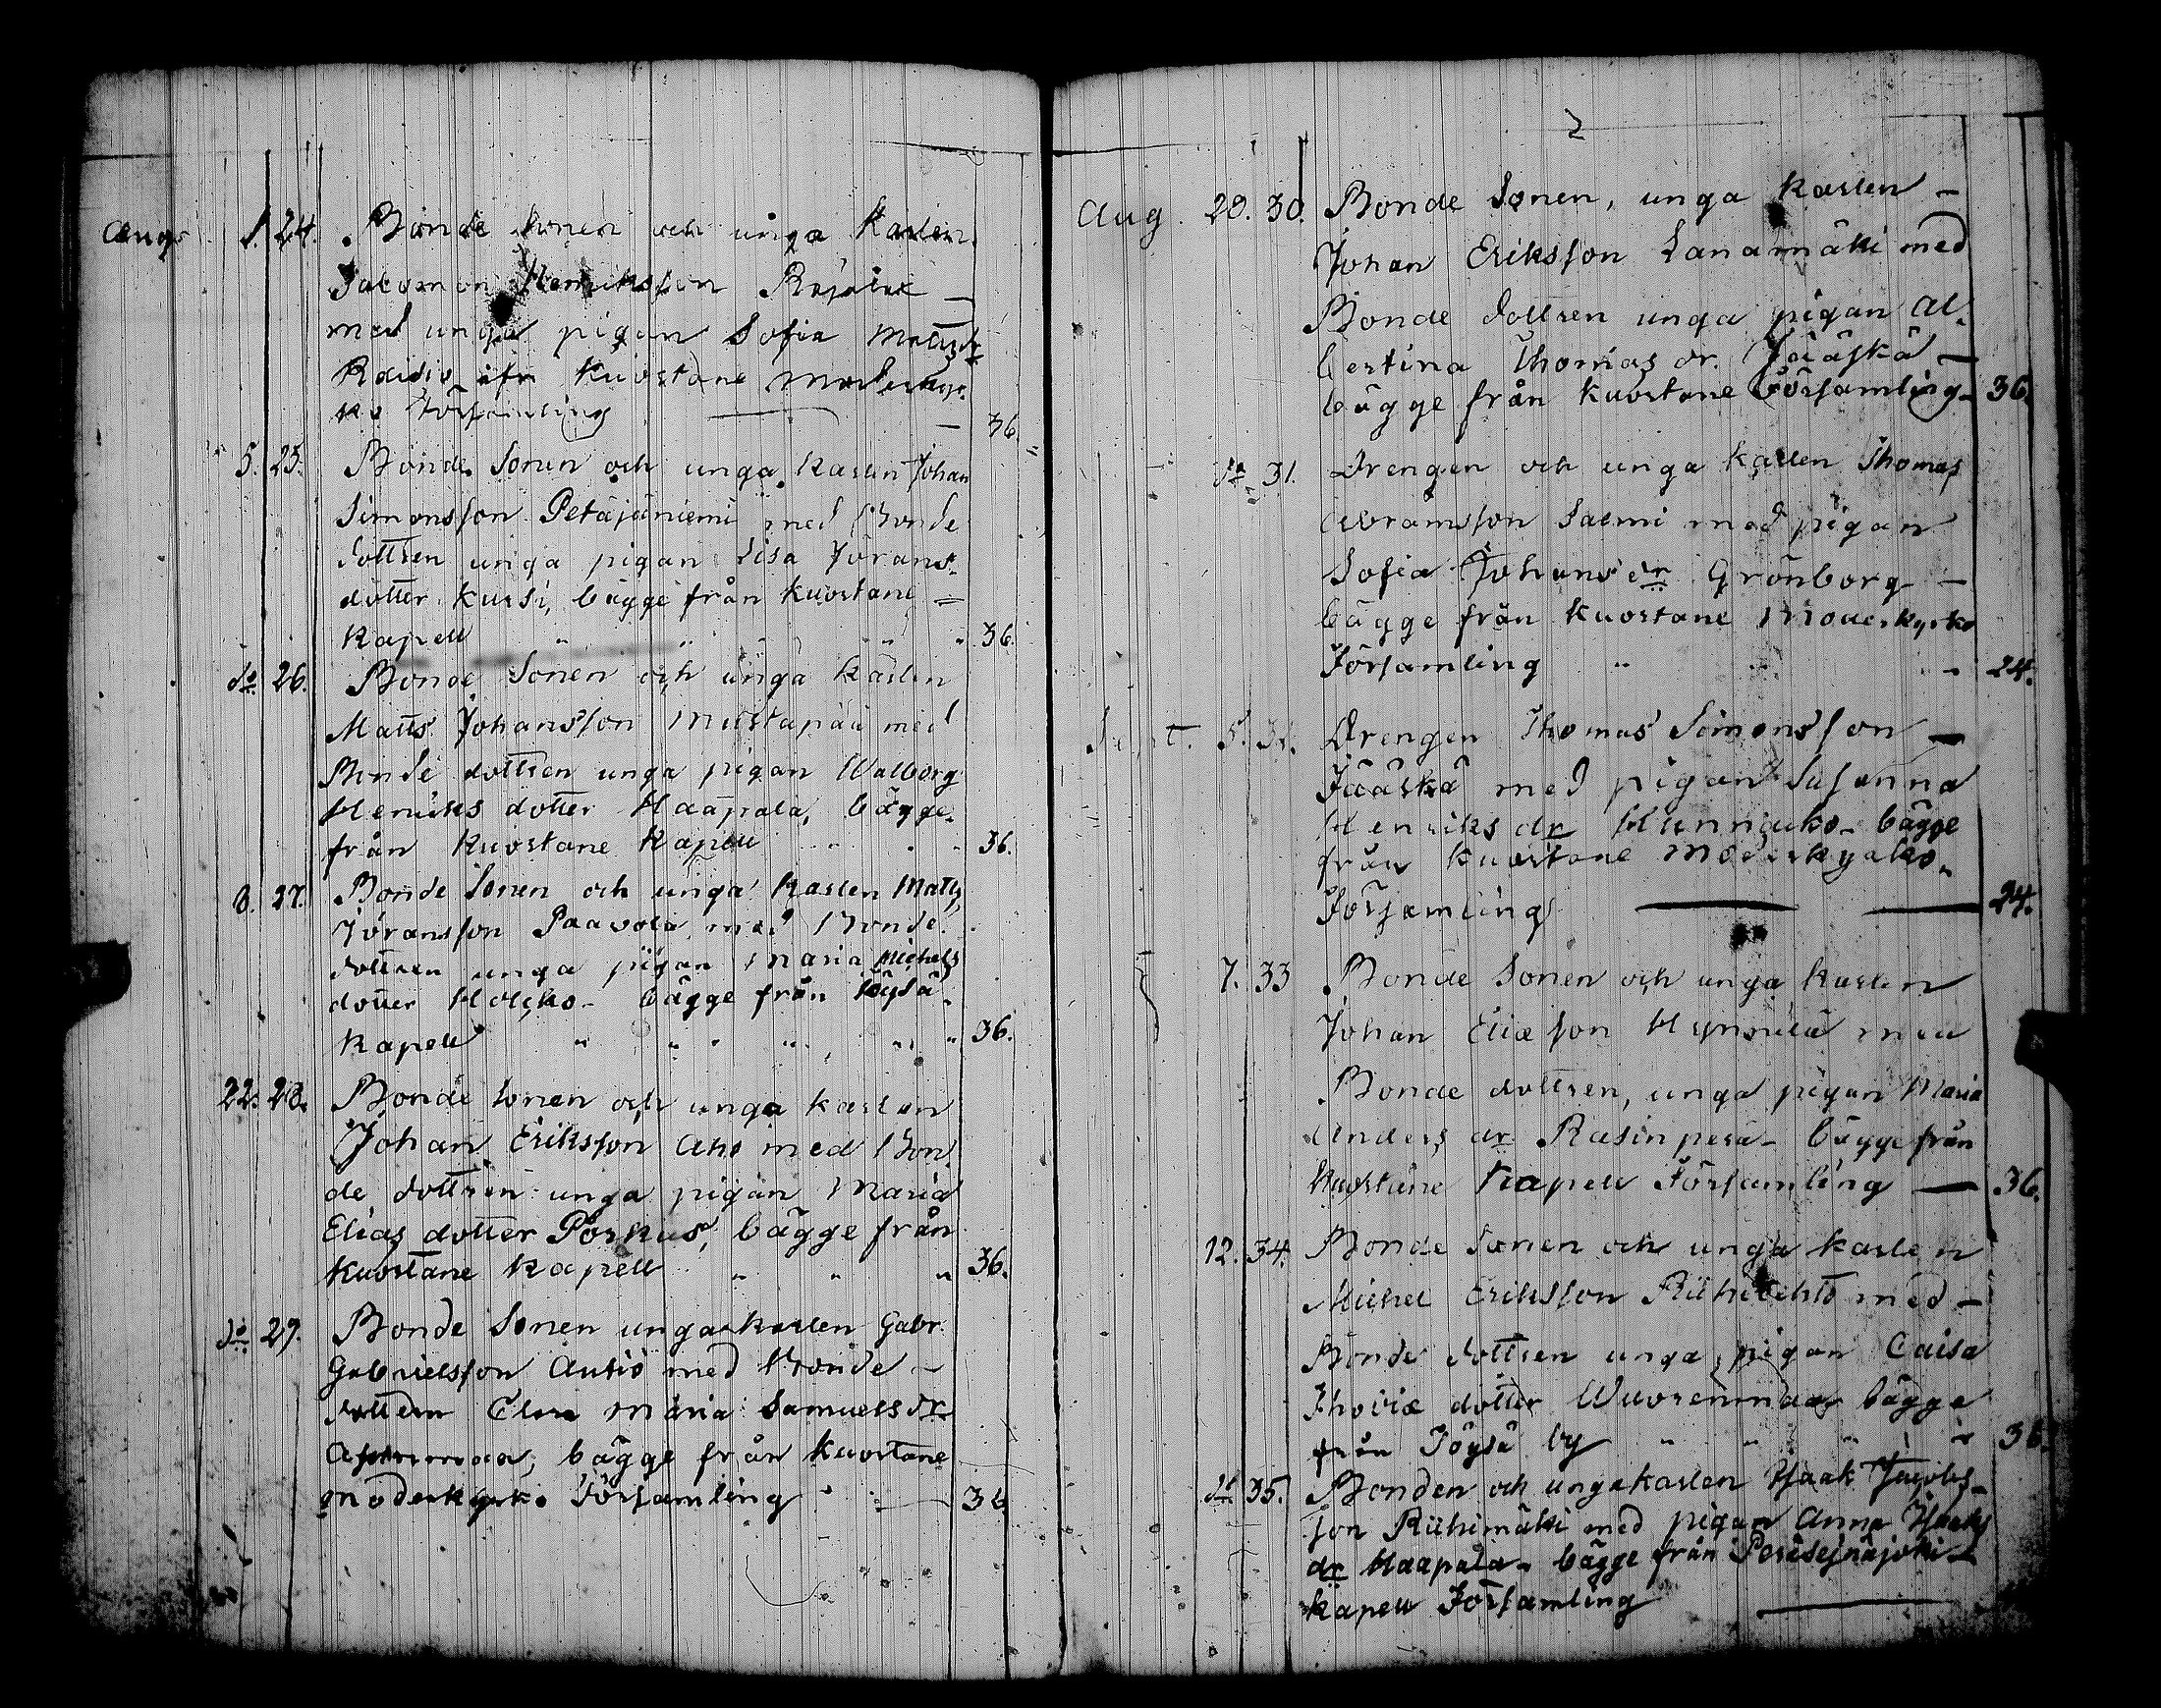 Aug. 1. 24. Bonde Sonen och unga Karlen
Salomon Henriksson
med unga pigan Sofia Mattsdr
Raisio ifr Kuortane Moderkyr-
ko Församling — 36.
5. 25. Bonde Sonen och unga Karlen Johan
Simonsson Petäjäniemi med Bonde
dottren unga pigan Lisa Jörans-
dotter Kursi, bägge från Kuortane
Kapell " " " " 36.
do 26. Bonde Sonen och unga Karlen
Matts Johansson Mustapää med
Bonde dottren unga pigan Walborg
Henriks dotter Haapala, bägge
från Kuortane Kapell 36.
8. 27. Bonde Sonen och unga Karlen Matts
Jöransson Paavola med Bonde
dottren unga pigan Maria Michels
dotter Holcko- bägge från Töysä
Kapell " " " " " 36.
22. 28. Bonde Sonen och unga Karlen
Johan Eriksson Aho med Bon
de dottren unga pigan Maria
Elias dotter Porkus, bägge från
Kuortane Kapell " " " 36.
do 29. Bonde Sonen unga karlen Gabr.
Gabrielsson Autio med Bonde –
dottern Clara Maria Samuels dr
bägge från Kuortane
moderkyrko Församling 36
2
Aug. 28. 30. Bonde Sonen, unga Karlen –
Johan Eriksson Lanamäki med
Bonde dottren unga pigan Al-
bertina Thomas dr. Jääskä –
bägge från Kuortane Församling- 36.
do 31. Drengen och unga Karlen Thomas
Abramsson Salmi med pigan
Sofia Johans dr Grönborg –
bägge från Kuortane Moderkyrko
Församling " " 24.
Sept. 5. 32. Drengen Thomas Simonsson –
Jääskä med pigan Susanna
Henriks dr Hunnguko- bägge
från Kuortane Moderkyrko-
Församling — — 24.
7. 33 Bonde Sonen och unga Karlen
Johan Eliæson Hynnilä med
Bonde dottren, unga pigan Maria
Anders dr Rasinperä- bägge från
Kuortane Kapell Församling — 36.
12. 34. Bonde Sonen och unga Karlen
Michel Eriksson Riihilehto med –
Bonde dottren unga pigan Caisa
dotter Wuorenmaa bägge
från Töysä by " " " " 36.
do 35. Bonden och unga karlen Isaak Jacobs-
son Riihimäki med pigan Anna Isaaks
dr Haapala- bägge från Peräsejnäjoki –
Kapell Församling —